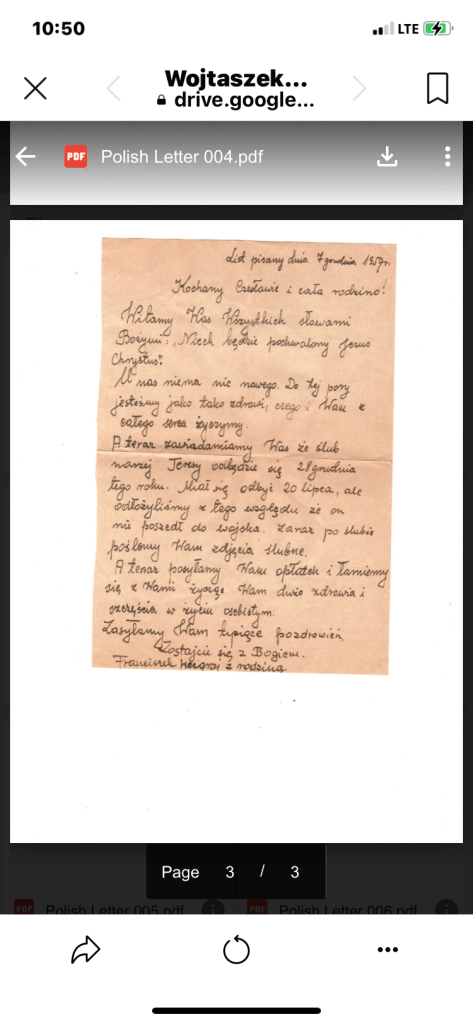 10:50
LTE
Wojtaszek...
drive.google...
PDF Polish Letter 004.pdf
List pisany dnia 7 grudnia 1957r.
Kochany Czesławie i cała rodzino!
Witamy Was Wszystkich słowami
Bożymi: "Niech będzie pochwalony Jezus
Chrystus".
U nas niema nic nowego. Do tej pory
jesteśmy jako tako zdrowi, czego i Wam z
całego serca życzymy.
A teraz zawiadamiamy Was że ślub
naszej Teresy odbędzie się 28 grudnia
tego roku. Miał się odbyć 20 lipca, ale
odłożyliśmy z tego względu że on
nie poszedł do wojska. Zaraz po ślubie
poślemy Wam zdjęcia ślubne.
A teraz posyłamy Wam opłatek i łamiemy
się z Wami życząc Wam dużo zdrowia i
szczęścia w życiu osobistym.
Zasyłamy Wam tysiące pozdrowień,
Zostajcie się z Bogiem.
Franciszek z rodziną.
Page 3 / 3
PDF Polish Letter 005.pdf
PDF Polish Letter 006.pdf